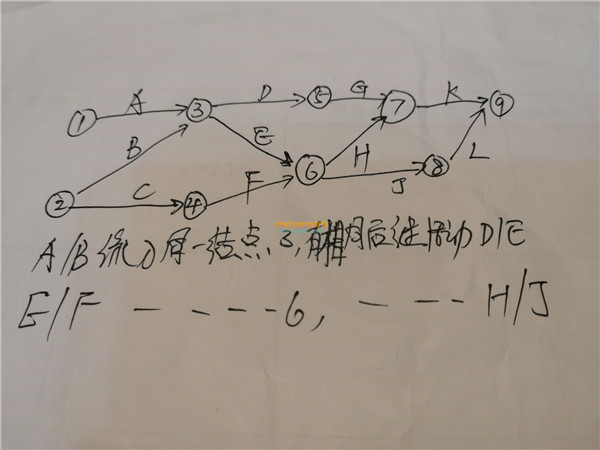 A D G K
① ③ ⑤ ⑦ ⑨
B E
H L
② C ④ F ⑥ J ⑧
A/B流入同一结点3,有相同后继活动D/E
E/F - - - - - 6, - - - - H/J